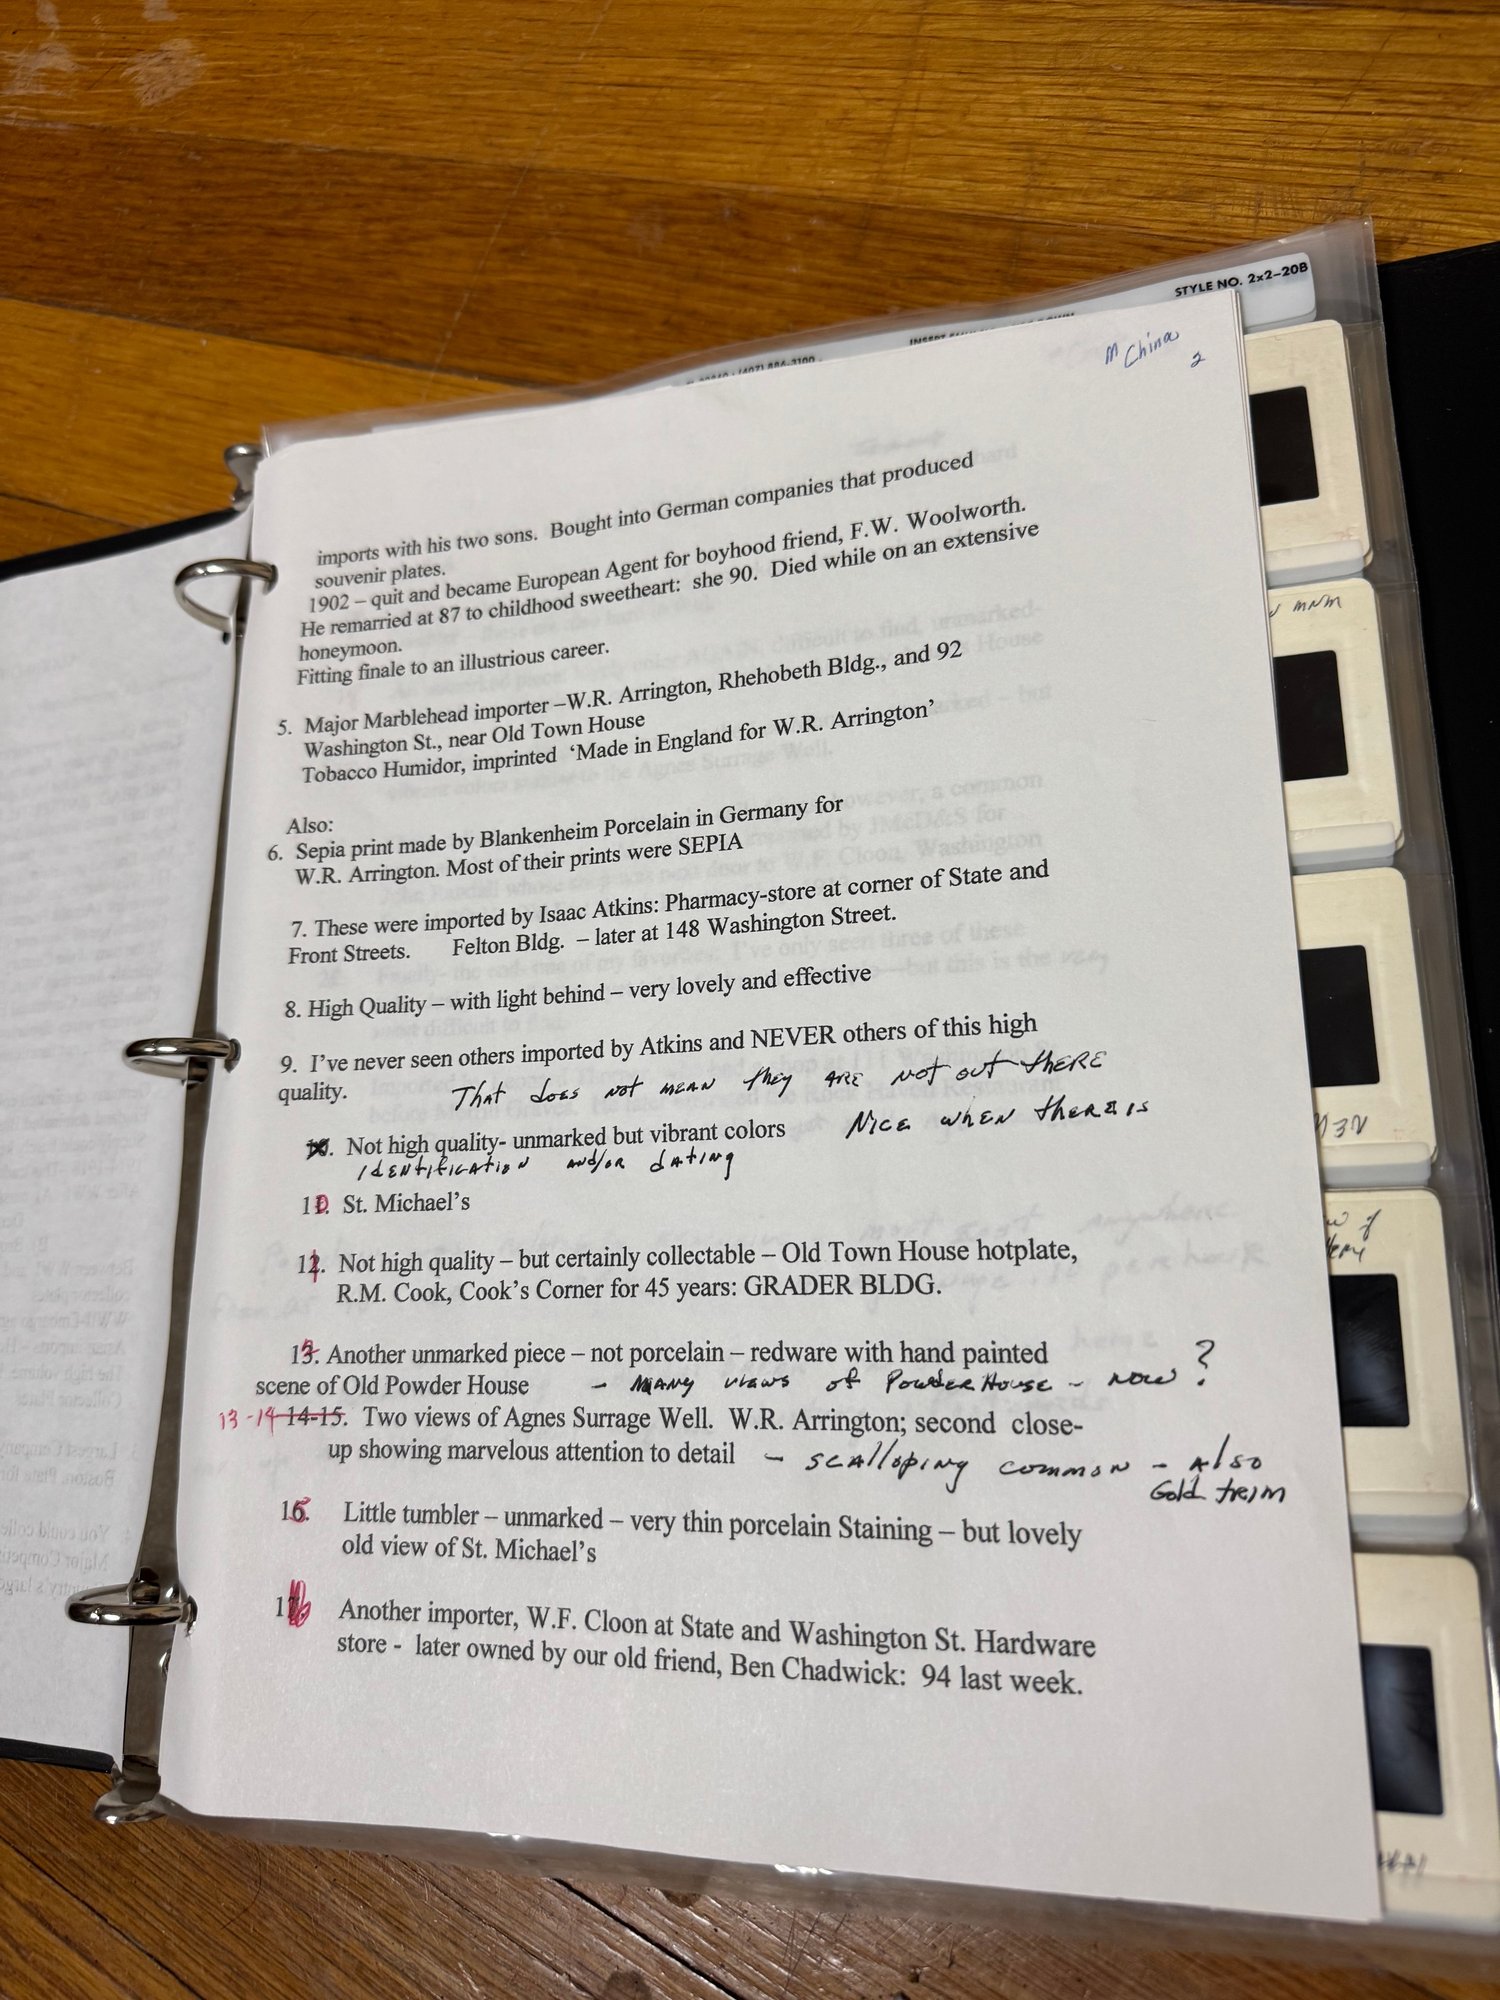 STYLE NO. 2x2-20B
M China
2
imports with his two sons. Bought into German companies that produced
souvenir plates.
1902 – quit and became European Agent for boyhood friend, F.W. Woolworth.
He remarried at 87 to childhood sweetheart: she 90. Died while on an extensive
honeymoon.
Fitting finale to an illustrious career.
5. Major Marblehead importer –W.R. Arrington, Rhehobeth Bldg., and 92
Washington St., near Old Town House
Tobacco Humidor, imprinted ‘Made in England for W.R. Arrington’
Also:
6. Sepia print made by Blankenheim Porcelain in Germany for
W.R. Arrington. Most of their prints were SEPIA
7. These were imported by Isaac Atkins: Pharmacy-store at corner of State and
Front Streets. Felton Bldg. – later at 148 Washington Street.
8. High Quality – with light behind – very lovely and effective
9. I’ve never seen others imported by Atkins and NEVER others of this high
quality. That does not mean they are not out there
10. Not high quality- unmarked but vibrant colors Nice when there is
identification and/or dating
10. St. Michael’s
11. Not high quality – but certainly collectable – Old Town House hotplate,
R.M. Cook, Cook’s Corner for 45 years: GRADER BLDG.
13. Another unmarked piece – not porcelain – redware with hand painted
scene of Old Powder House - Many views of Powder House - now?
13-14 14-15. Two views of Agnes Surrage Well. W.R. Arrington; second close-
up showing marvelous attention to detail - scalloping common - also
Gold trim
15. Little tumbler – unmarked – very thin porcelain Staining – but lovely
old view of St. Michael’s
16 Another importer, W.F. Cloon at State and Washington St. Hardware
store - later owned by our old friend, Ben Chadwick: 94 last week.